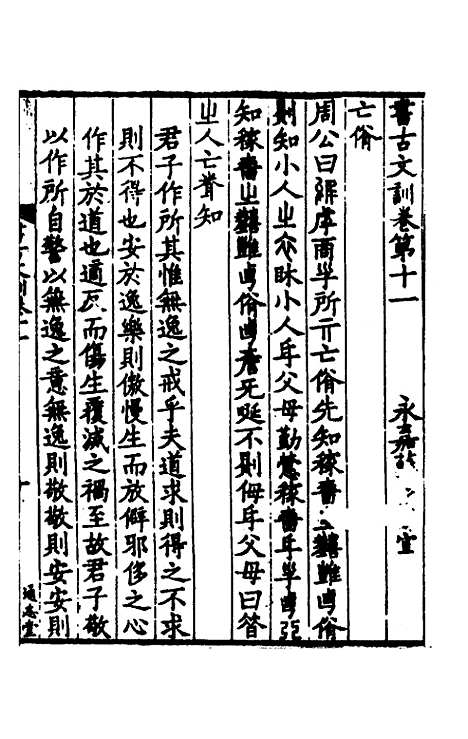 書古文訓卷第十一　永嘉薛宣
亡佾
周公曰虖所亓亡佾先知稼嗇㞢囏難甹佾
則知小人㞢小人㐆父母勤稼嗇㐆甹
知稼嗇㞢囏難甹佾甹不則侮㐆父母曰
㞢人亡知
君子作所其惟無逸之戒乎夫道求則得之不求
則不得也安於逸樂則傲慢生而放僻邪侈之心
作其於道也適反而傷生覆滅之禍至故君子敬
以作所自警以無逸之意無逸則敬敬則安安則
通志堂